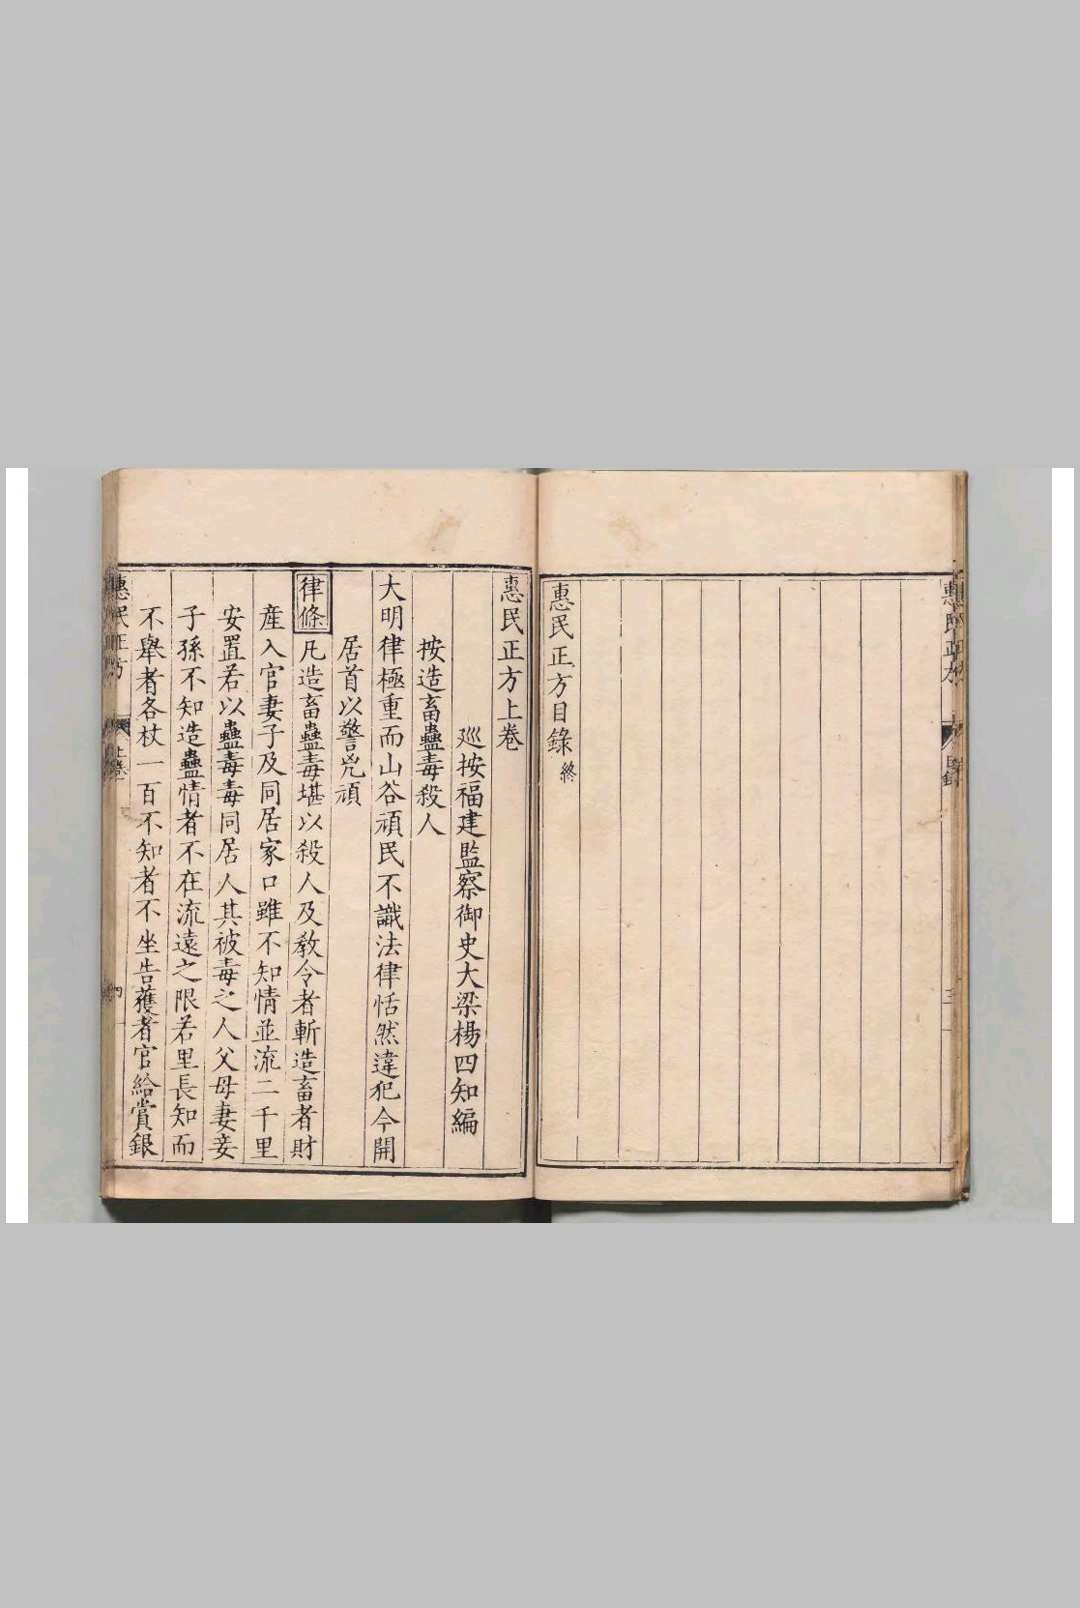 惠民正方目錄終
惠民正方上卷
廵按福建監察御史大梁楊四知編
按造畜蠱毒殺人
大明律極重而山谷頑民不識法律恬然違犯今開
居首以警兇頑
律條
凡造畜蠱毒堪以殺人及教令者斬造畜者財
產入官妻子及同居家口雖不知情並流二千里
安置若以蠱毒毒同居人其被毒之人父母妻妾
子孫不知造蠱情者不在流遠之限若里長知而
不舉者各杖一百不知者不坐告獲者官給賞銀
惠民正方
上卷
四